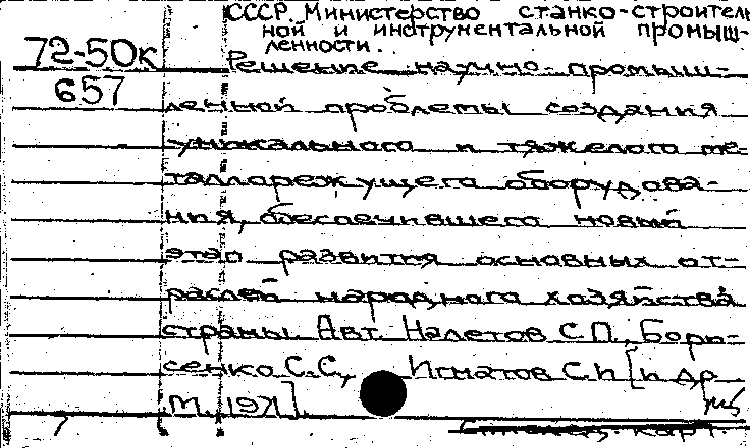 СССР. Министерство станко-строитель
ной и инструментальной промыш-
ленности.
72-50к
657
Решение научно-промыш-
ленной проблемы создания
уникального и тяжелого ме-
таллорежущего оборудова-
ния, обеспечившего новый
этап развития основных от-
раслей народного хозяйства
страны. Авт. Налетов С.П., Бори-
сенко С.С., Игнатов С.П. [и др
М. 1971].